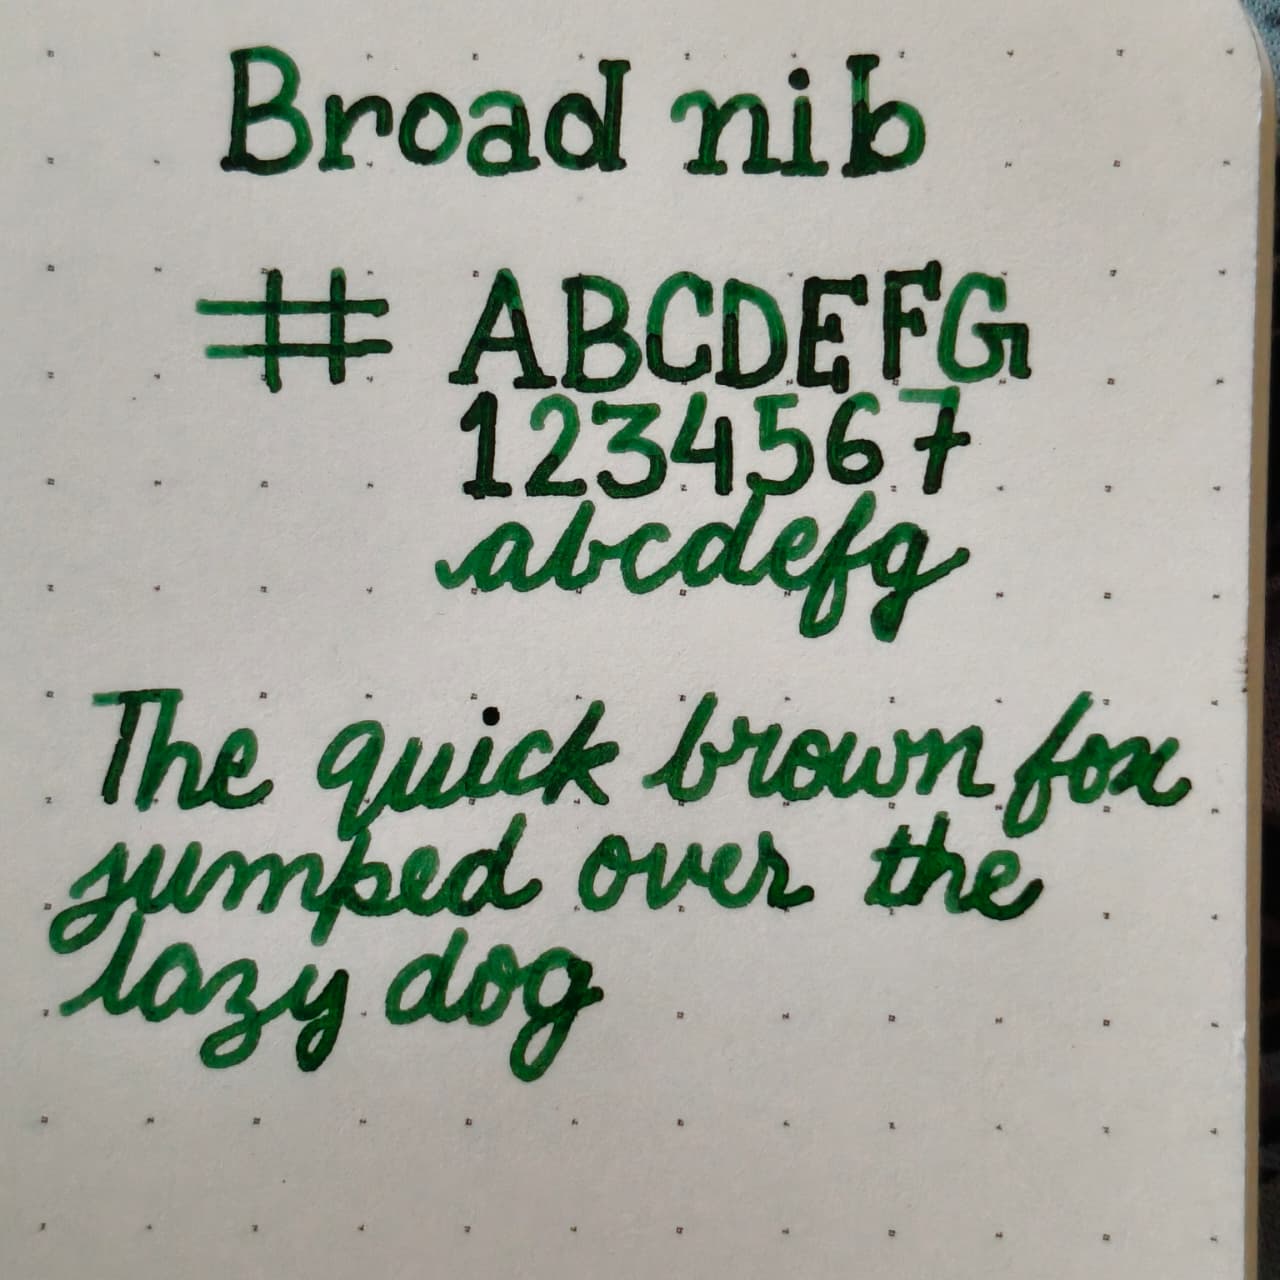 Broad nib
# ABCDEFG
1234567
abcdefg
The quick brown fox
jumped over the
lazy dog